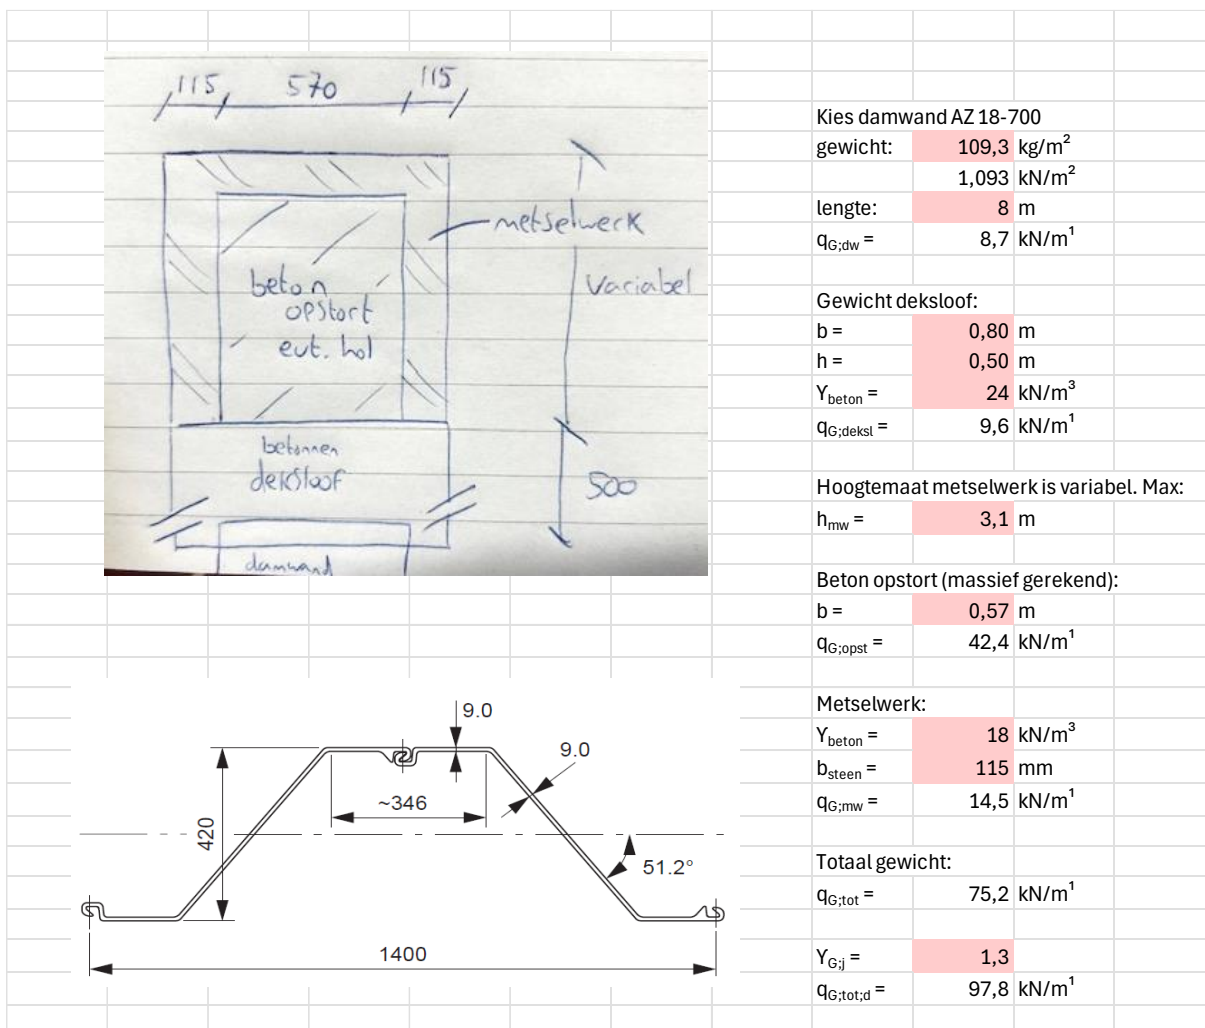 115 570 115
metselwerk
variabel
beton
opstort
evt. hol
betonnen
deksloof
500
damwand
9.0
9.0
~346
420
51.2°
1400
Kies damwand AZ 18-700
gewicht: 109,3 kg/m²
1,093 kN/m²
lengte: 8 m
qG;dw = 8,7 kN/m¹
Gewicht deksloof:
b = 0,80 m
h = 0,50 m
Υbeton = 24 kN/m³
qG;deksl = 9,6 kN/m¹
Hoogtemaat metselwerk is variabel. Max:
hmw = 3,1 m
Beton opstort (massief gerekend):
b = 0,57 m
qG;opst = 42,4 kN/m¹
Metselwerk:
Υbeton = 18 kN/m³
bsteen = 115 mm
qG;mw = 14,5 kN/m¹
Totaal gewicht:
qG;tot = 75,2 kN/m¹
ΥG;j = 1,3
qG;tot;d = 97,8 kN/m¹